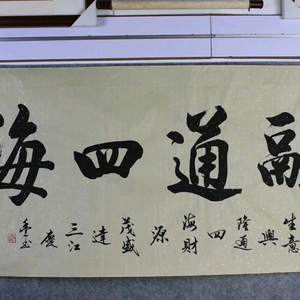 通四海
生意
興
隆通
四
海財
源
茂盛
達
三江
慶